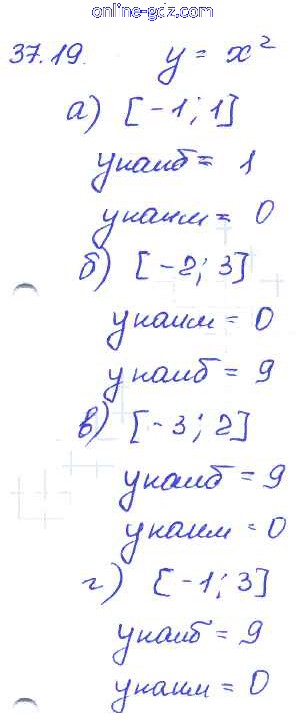 online-gdz.com
37.19. y = x²
а) [-1; 1]
yнаиб = 1
yнаим = 0
б) [-2; 3]
yнаим = 0
yнаиб = 9
в) [-3; 2]
yнаиб = 9
yнаим = 0
г) [-1; 3]
yнаиб = 9
yнаим = 0